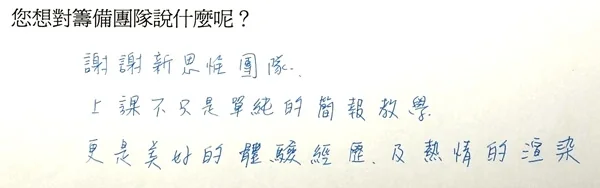 您想對籌備團隊說什麼呢？
謝謝新思惟團隊.
上課不只是單純的簡報教學.
更是美好的體驗經歷、及熱情的渲染